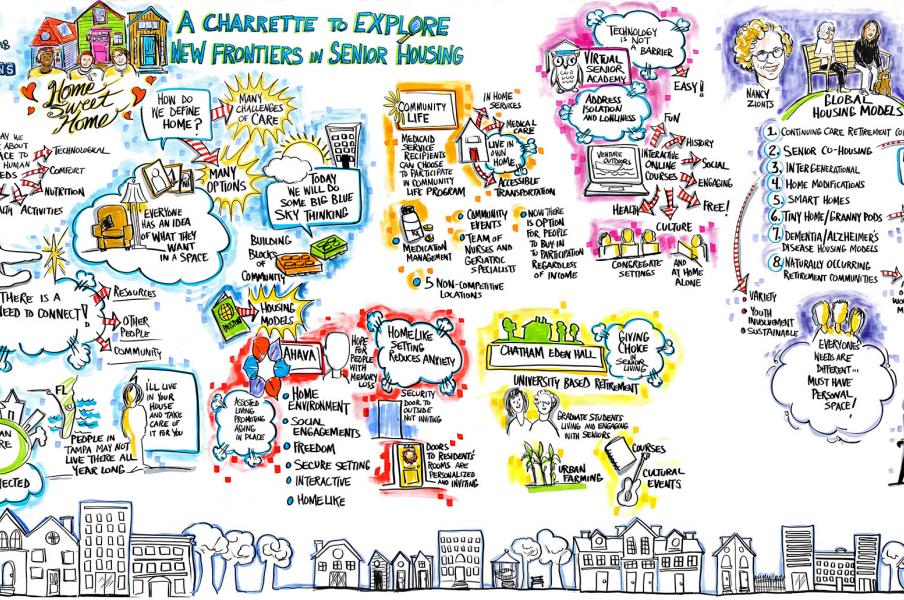 A CHARRETTE TO EXPLORE
NEW FRONTIERS IN SENIOR HOUSING
Home
Sweet
Home
HOW DO
WE DEFINE
HOME?
MANY
CHALLENGES
OF CARE
MANY
OPTIONS
TODAY
WE WILL DO
SOME BIG BLUE
SKY THINKING
TECHNOLOGICAL
COMFORT
NUTRITION
ACTIVITIES
EVERYONE
HAS AN IDEA
OF WHAT THEY
WANT
IN A SPACE
BUILDING
BLOCKS
OF
COMMUNITY
HOUSING
MODELS
THERE IS A
NEED TO CONNECT!
RESOURCES
OTHER
PEOPLE
COMMUNITY
FL
PEOPLE IN
TAMPA MAY NOT
LIVE THERE ALL
YEAR LONG
I'LL LIVE
IN YOUR
HOUSE
AND TAKE
CARE OF
IT FOR YOU
COMMUNITY
LIFE
MEDICAID
SERVICE
RECIPIENTS
CAN CHOOSE
TO PARTICIPATE
IN COMMUNITY
LIFE PROGRAM
IN HOME
SERVICES
MEDICAL
CARE
LIVE IN
OWN
HOME
ACCESSIBLE
TRANSPORTATION
MEDICATION
MANAGEMENT
COMMUNITY
EVENTS
TEAM OF
NURSES AND
GERIATRIC
SPECIALISTS
5 NON-COMPETITIVE
LOCATIONS
NOW THERE
IS OPTION
FOR PEOPLE
TO BUY IN
TO PARTICIPATION
REGARDLESS
OF INCOME
AHAVA
HOPE
FOR
PEOPLE
WITH
MEMORY
LOSS
ASSISTED
LIVING
PROMOTING
AGING
IN PLACE
HOME
ENVIRONMENT
SOCIAL
ENGAGEMENTS
FREEDOM
SECURE SETTING
INTERACTIVE
HOMELIKE
HOMELIKE
SETTING
REDUCES ANXIETY
SECURITY
DOOR TO
OUTSIDE
NOT
INVITING
DOORS
TO RESIDENTS'
ROOMS ARE
PERSONALIZED
AND INVITING
CHATHAM EDEN HALL
GIVING
CHOICE
IN
SENIOR
LIVING
UNIVERSITY BASED RETIREMENT
GRADUATE STUDENTS
LIVING AND ENGAGING
WITH SENIORS
URBAN
FARMING
COURSES
CULTURAL
EVENTS
TECHNOLOGY
IS NOT
A BARRIER
VIRTUAL
SENIOR
ACADEMY
EASY!
ADDRESS
ISOLATION
AND LONLINESS
VENTURE
OUTDOORS
INTERACTIVE
ONLINE
COURSES
FUN
HISTORY
SOCIAL
ENGAGING
FREE!
HEALTH
CULTURE
CONGREGATE
SETTINGS
AND
AT HOME
ALONE
NANCY
ZIONTS
GLOBAL
HOUSING MODELS
1. CONTINUING CARE RETIREMENT
2. SENIOR CO-HOUSING
3. INTERGENERATIONAL
4. HOME MODIFICATIONS
5. SMART HOMES
6. TINY HOME/GRANNY PODS
7. DEMENTIA/ALZHEIMER'S
DISEASE HOUSING MODELS
8. NATURALLY OCCURRING
RETIREMENT COMMUNITIES
VARIETY
YOUTH
INVOLVEMENT
SUSTAINABLE
EVERYONES
NEEDS ARE
DIFFERENT...
MUST HAVE
PERSONAL
SPACE!